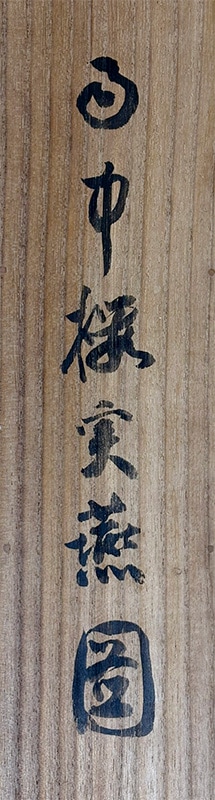 雨中桜実燕図